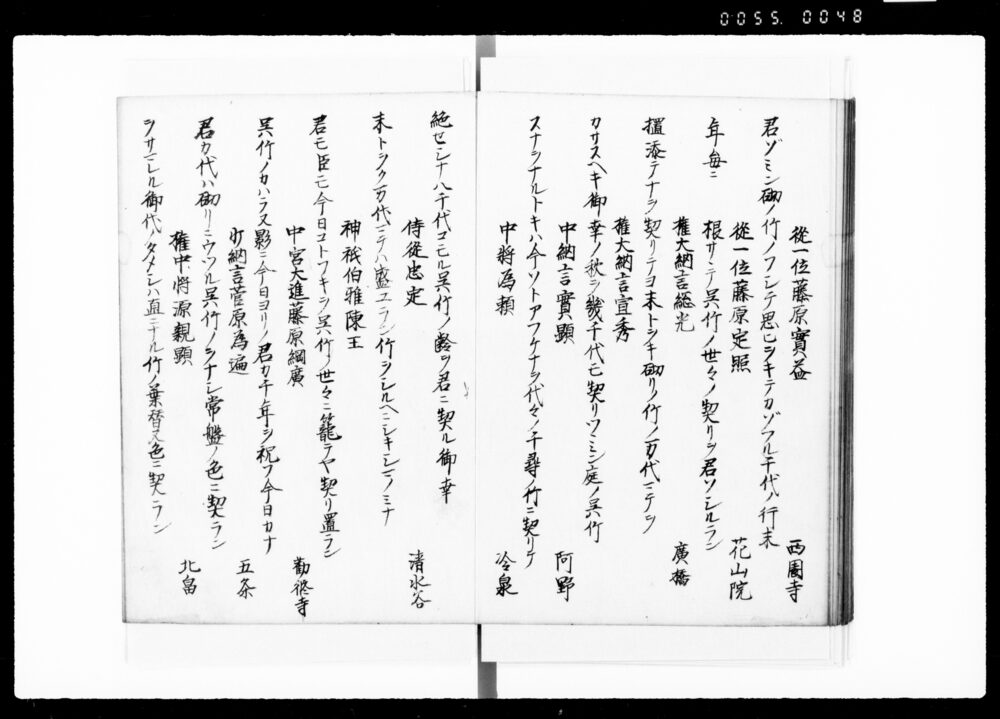 0055. 0048
從一位藤原實益 西園寺
君ゾミン砌ノ竹ノフシテ思ヒシキテカゾフル千代ノ行末
從一位藤原定照 花山院
年毎ニ根サシテ呉竹ノ世々ノ契リヲ君ソシルラン
權大納言総光 廣橋
植添テナヲ契リテヨ末トシキ砌リノ竹ノ万代ニテソ
權大納言宣秀
カサスヘキ御幸ノ秋ヲ幾千代モ契リツミン庭ノ呉竹
中納言實顕 阿野
スナヲナルトキハ今ソトアフケナヲ代々ノ千尋ノ竹ニ契リテ
中將為頼 冷泉
絶セシナ八千代コモル呉竹ノ齢ヲ君ニ契ル御幸
侍從忠定 清水谷
末トヲク万代ニテハ盛ユラン竹ヲシルヘニシキシマノミチ
神祇伯雅陳王
君モ臣モ今日コトフキヲ呉竹ノ世々ニ籠テヤ契リ置ラン
中宮大進藤原綱廣 勸修寺
呉竹ノカハラヌ影ニ今日ヨリノ君カ千年ヲ祝フ今日カナ
少納言菅原為適 五条
君カ代ハ砌リニウツル呉竹ノヲナシ常盤ノ色ニ契ラン
權中將源親顕 北畠
ヲサマレル御代ノタメシハ直ナル竹ノ葉替ヌ色ニ契ラン